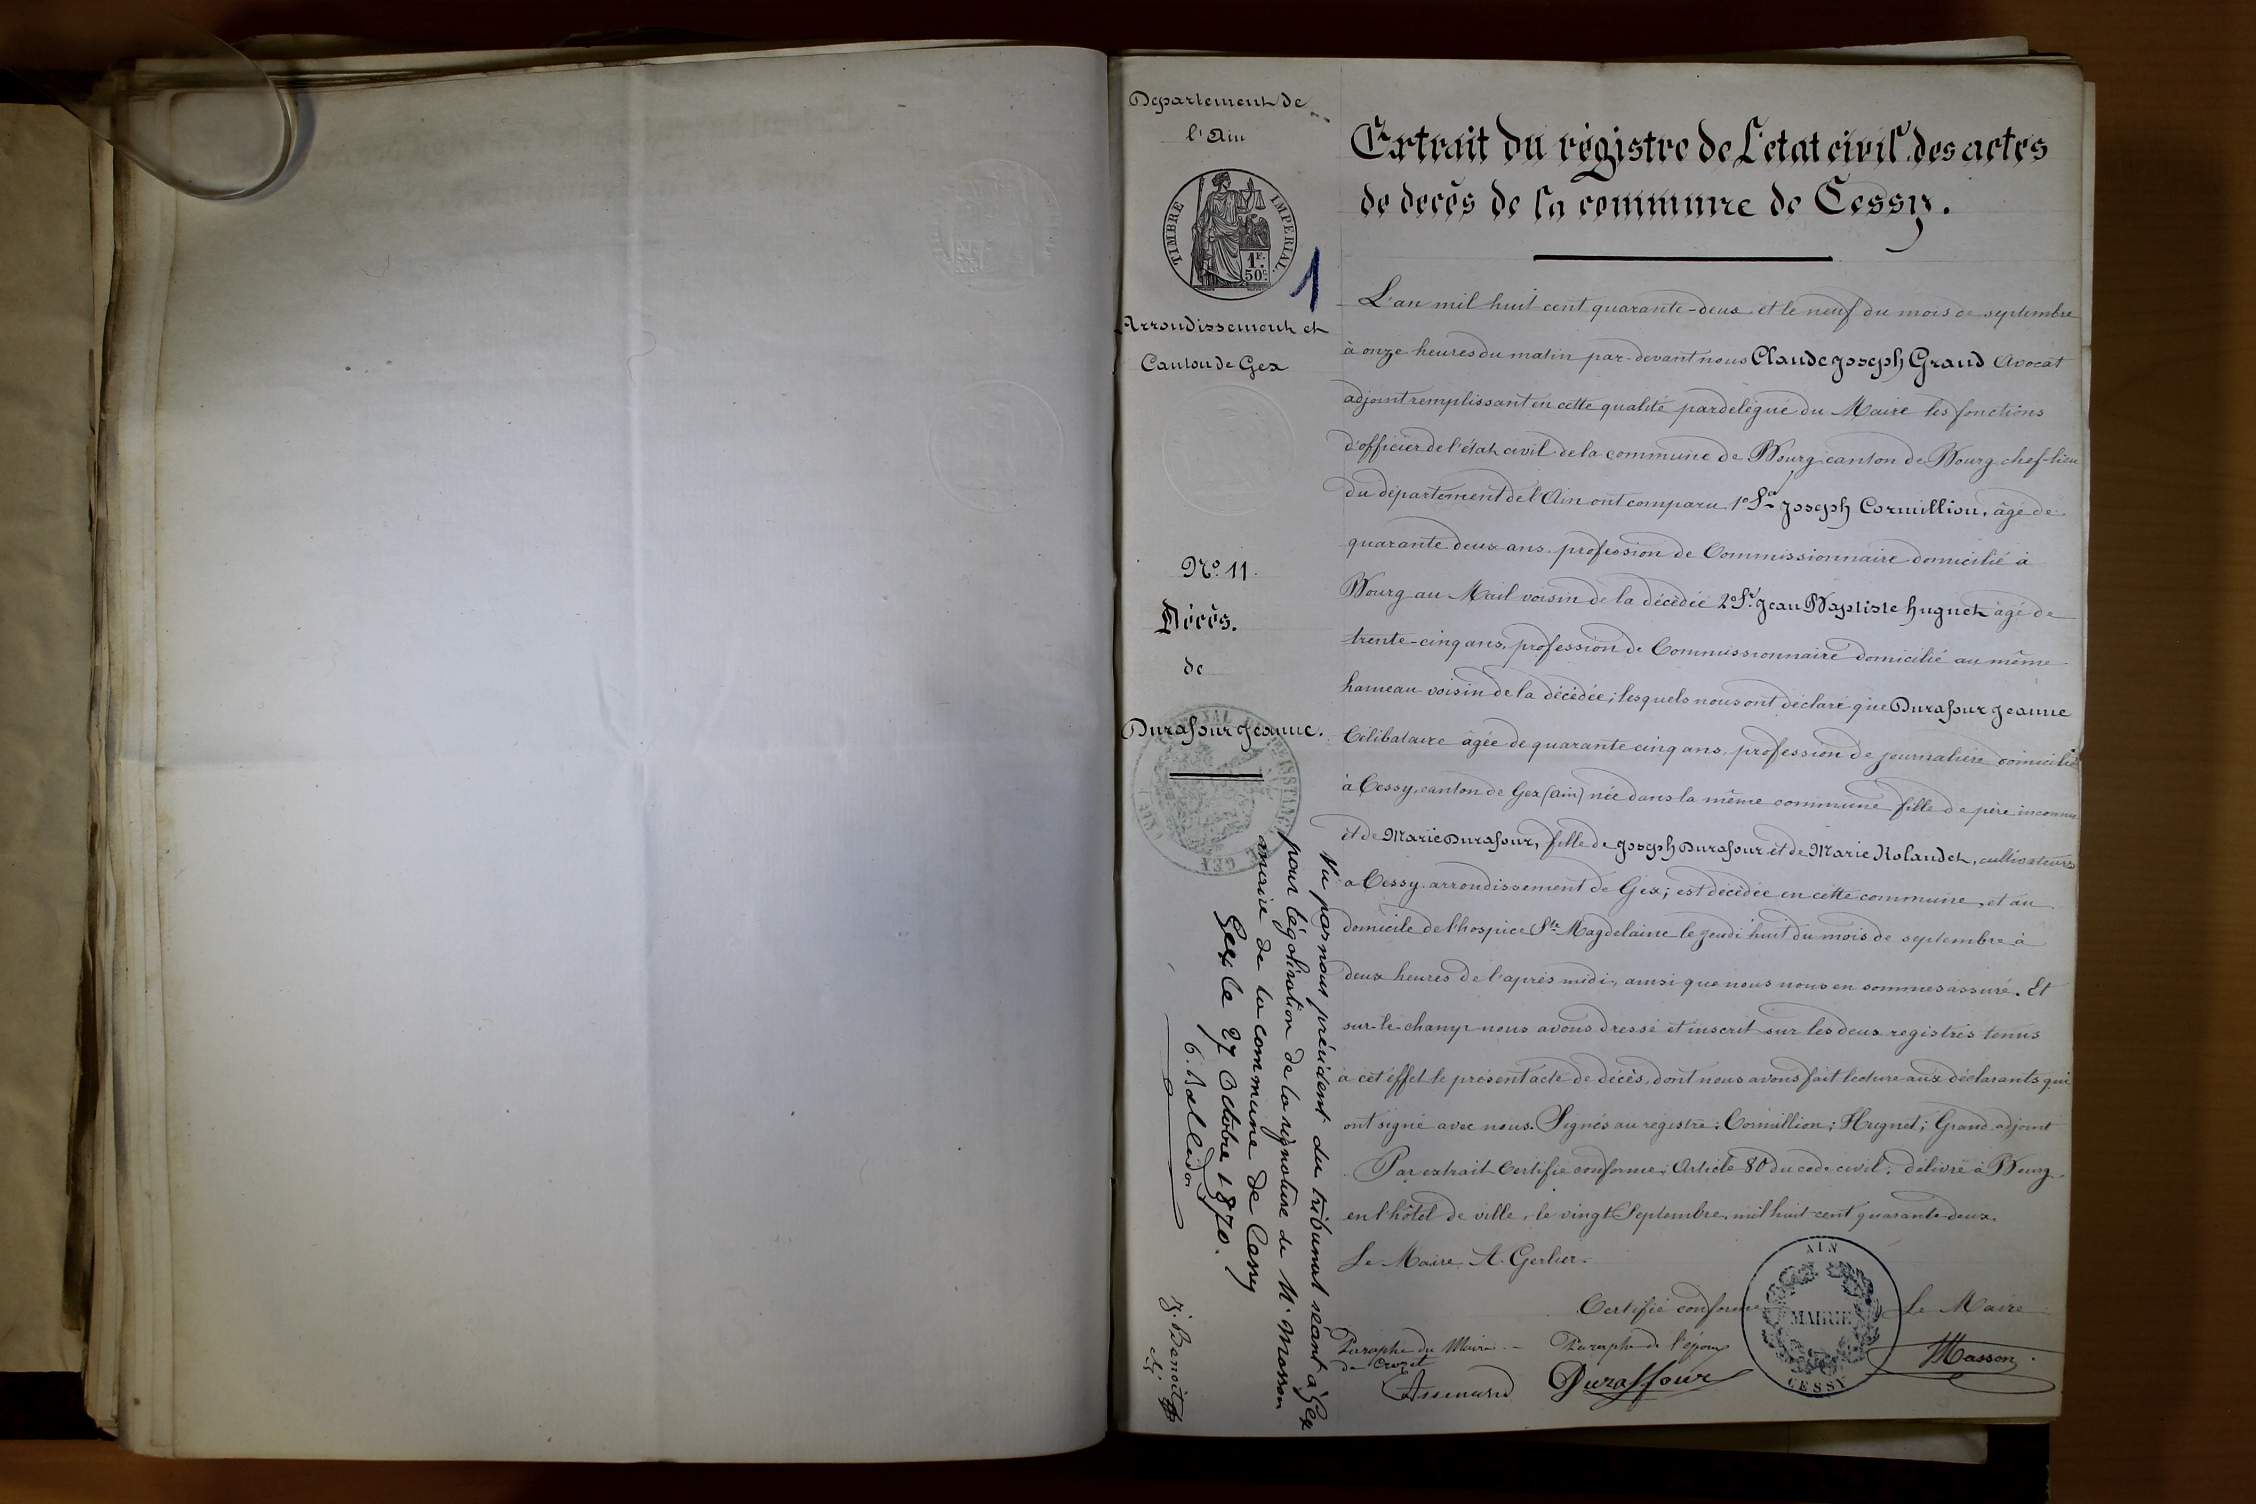 Departement de
l'Ain
TIMBRE IMPERIAL
1F.
50c
1
Arrondissement et
Canton de Gex
No. 11.
Décès.
de
Durafour Jeanne.
Extrait du régistre de L'etat civil des actes
de decès de la commune de Cessy.
L'an mil huit cent quarante-deux et le neuf du mois de septembre
à onze heures du matin par-devant nous Claude Joseph Grand Avocat
adjoint remplissant en cette qualité par délégué du Maire les fonctions
d'officier de l'état civil de la commune de Bourg canton de Bourg chef-lieu
du département de l'Ain ont comparu 1o Sr Joseph Cormillion, âgé de
quarante deux ans profession de Commissionnaire domicilié à
Bourg au Mail voisin de la décédée 2o Sr Jean Baptiste Huguet âgé de
trente-cinq ans, profession de Commissionnaire domicilié au même
hameau voisin de la décédée; lesquels nous ont déclaré que Durafour Jeanne
Célibataire âgée de quarante cinq ans, profession de journalière domicilié
à Cessy, canton de Gex (Ain) née dans la même commune fille de père inconnu
et de Marie Durafour, fille de Joseph Durafour et de Marie Rolandet, cultivateurs
a Cessy arrondissement de Gex; est décédée en cette commune, et au
domicile de l'hospice Ste Magdelaine le jeudi huit du mois de septembre à
deux heures de l'après midi, ainsi que nous nous en sommes assuré. Et
sur-le-champ nous avons dressé et inscrit sur les deux registres tenus
à cet effet le présent acte de décès, dont nous avons fait lecture aux déclarants qui
ont signé avec nous. Signés au registre: Cormillion; Hugnet; Grand adjoint
Par extrait Certifié conforme; Article 80 du code civil. délivré à Bourg
en l'hôtel de ville, le vingt Septembre, mil huit cent quarante-deux.
Le Maire A. Gerlier.
Certifié conforme
Le Maire
AIN
MAIRIE
CESSY
Masson
Paraphe du Maire
de Crozet
Paraphe de l'époux
Duraffour
Vu par nous président du tribunal séant à Gex
pour légalisation de la signature de M. Masson
maire de la commune de Cessy
Gex le 27 Octobre 1870.
J. Benoit